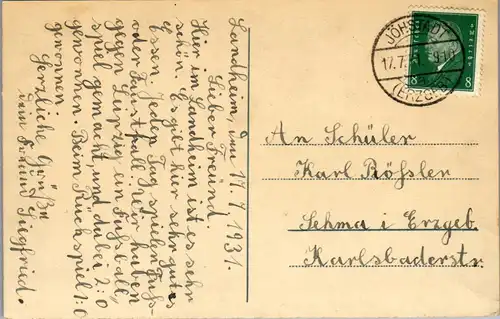 Landheim, den 17. 7. 1931.
Lieber Freund.
Hier im Landheim ist es sehr
schön. Es gibt hier sehr gutes
Essen. Jeden Tag spielen Fuss-
oder Faustball. Wir haben
gegen Leipzig ein Fussball-
spiel gemacht und dabei 2:0
gewonnen. Beim Rückspiel 1:0
gewonnen
Herzliche Grüße
dein Freund Siegfried.
JÖHSTADT
17.7.31. 9-10
(ERZGEB)
8 8
An Schüler
Karl Rößler
Sehma i Erzgeb.
Karlsbaderstr.